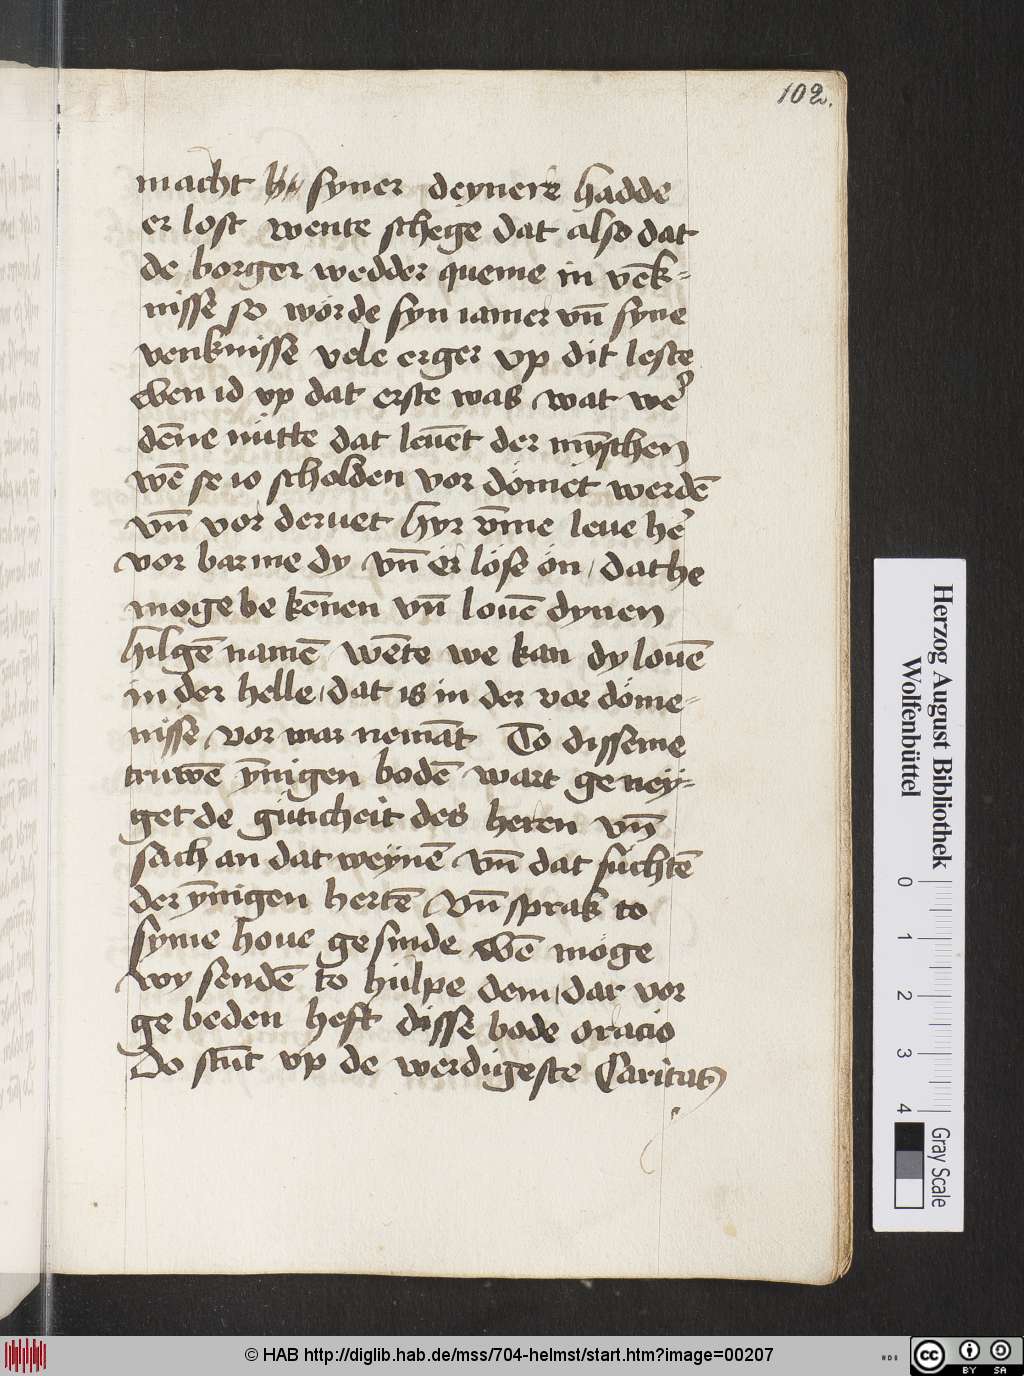 102.
macht syner deynere hadde
er lost wente schege dat also dat
de borger wedder queme in vēk=
nisse so wörde syn iamer vn̄ syne
venknisse vele erger vp dit leste
wen id vp dat erste was wat we᷎
dēne nütte dat leuēt der mȳschen
wē se io scholden vor dömet werdē
vn̄ vor deruet hyr v̄me leue he᷎
vor barme dy vn̄ erlöse ön / dat he
moge be kēnen vn̄ louē dynen
hilgē namē wēte we kan dy louē
in der helle / dat is in der vor döme=
nisse vor war nemāt To disseme
truwē ȳnigen bodē wart ge ney=
get de güticheit des heren vn̄
sach an dat weynē vn̄ dat süchtē
der ȳnigen hertē vn̄ sprak to
syme houe ge sinde wē möge
wy sendē to hülpe dem / dar vor
ge beden heft disse bode oracio
Do stūt vp de werdigeste Caritas
Herzog August Bibliothek
Wolfenbüttel
0 1 2 3 4
Gray Scale
© HAB http://diglib.hab.de/mss/704-helmst/start.htm?image=00207
HAB
cc BY SA